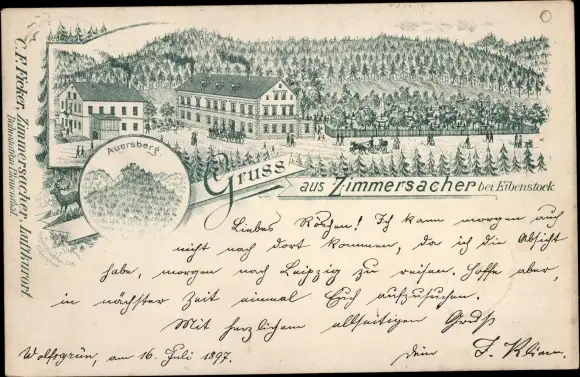 C. F. Ficker, Zimmersacher, Luftkurort
Auersberg.
Gruss
aus Zimmersacher bei Eibenstock
Liebes Röschen! Ich kann morgen auch
nicht nach dort kommen, da ich die Absicht
habe, morgen nach Leipzig zu reisen. Hoffe aber,
in nächster Zeit einmal Euch aufzusuchen.
Mit herzlichem allseitigen Gruß
Wolfsgrün, am 16. Juli 1897.
Dein